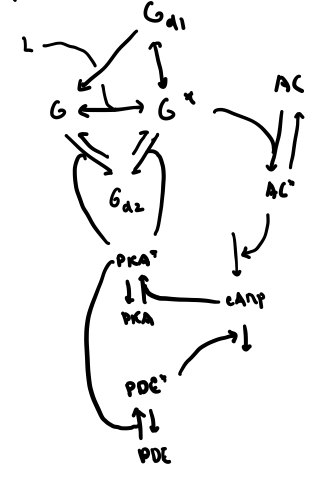 G d1
L
G G*
AC
AC*
G d2
PKA*
PKA
cAMP
PDE*
PDE